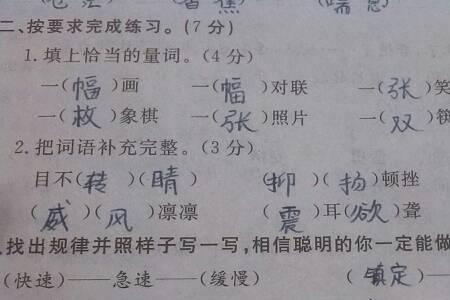 二、按要求完成练习。(7分)
1.填上恰当的量词。(4分)
一(幅)画 一(幅)对联 一(张)笑
一(枚)象棋 一(张)照片 一(双)筷
2.把词语补充完整。(3分)
目不(转)(睛) (抑)(扬)顿挫
(威)(风)凛凛 (震)耳(欲)聋
.找出规律并照样子写一写,相信聪明的你一定能做
(快速)——急速——(缓慢) (镇定)—